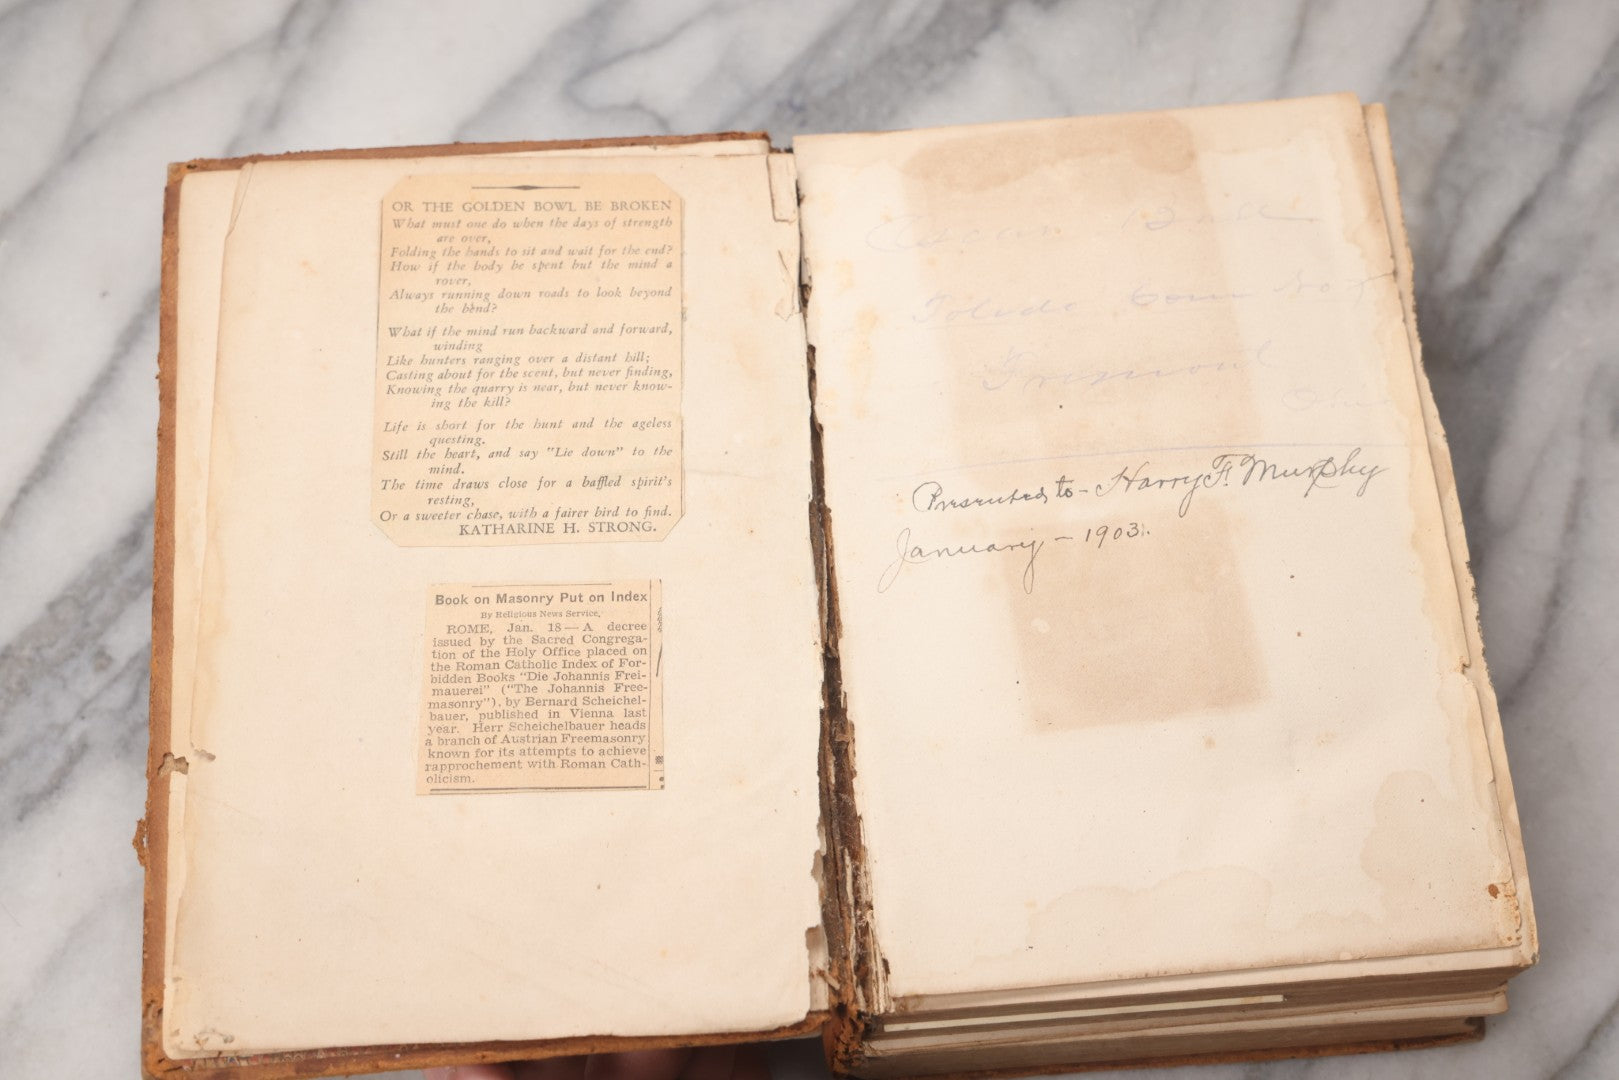 OR THE GOLDEN BOWL BE BROKEN
What must one do when the days of strength
are over,
Folding the hands to sit and wait for the end?
How if the body be spent but the mind a
rover,
Always running down roads to look beyond
the bend?
What if the mind run backward and forward,
winding
Like hunters ranging over a distant hill;
Casting about for the scent, but never finding,
Knowing the quarry is near, but never know-
ing the kill?
Life is short for the hunt and the ageless
questing.
Still the heart, and say "Lie down" to the
mind.
The time draws close for a baffled spirit's
resting,
Or a sweeter chase, with a fairer bird to find.
KATHARINE H. STRONG.
Book on Masonry Put on Index
By Religious News Service.
ROME, Jan. 18—A decree
issued by the Sacred Congrega-
tion of the Holy Office placed on
the Roman Catholic Index of For-
bidden Books "Die Johannis Frei-
mauerei" ("The Johannis Free-
masonry"), by Bernard Scheichel-
bauer, published in Vienna last
year. Herr Scheichelbauer heads
a branch of Austrian Freemasonry
known for its attempts to achieve
rapprochement with Roman Cath-
olicism.
Toledo Com No 7
Presented to - Harry F. Murphy
January - 1903.